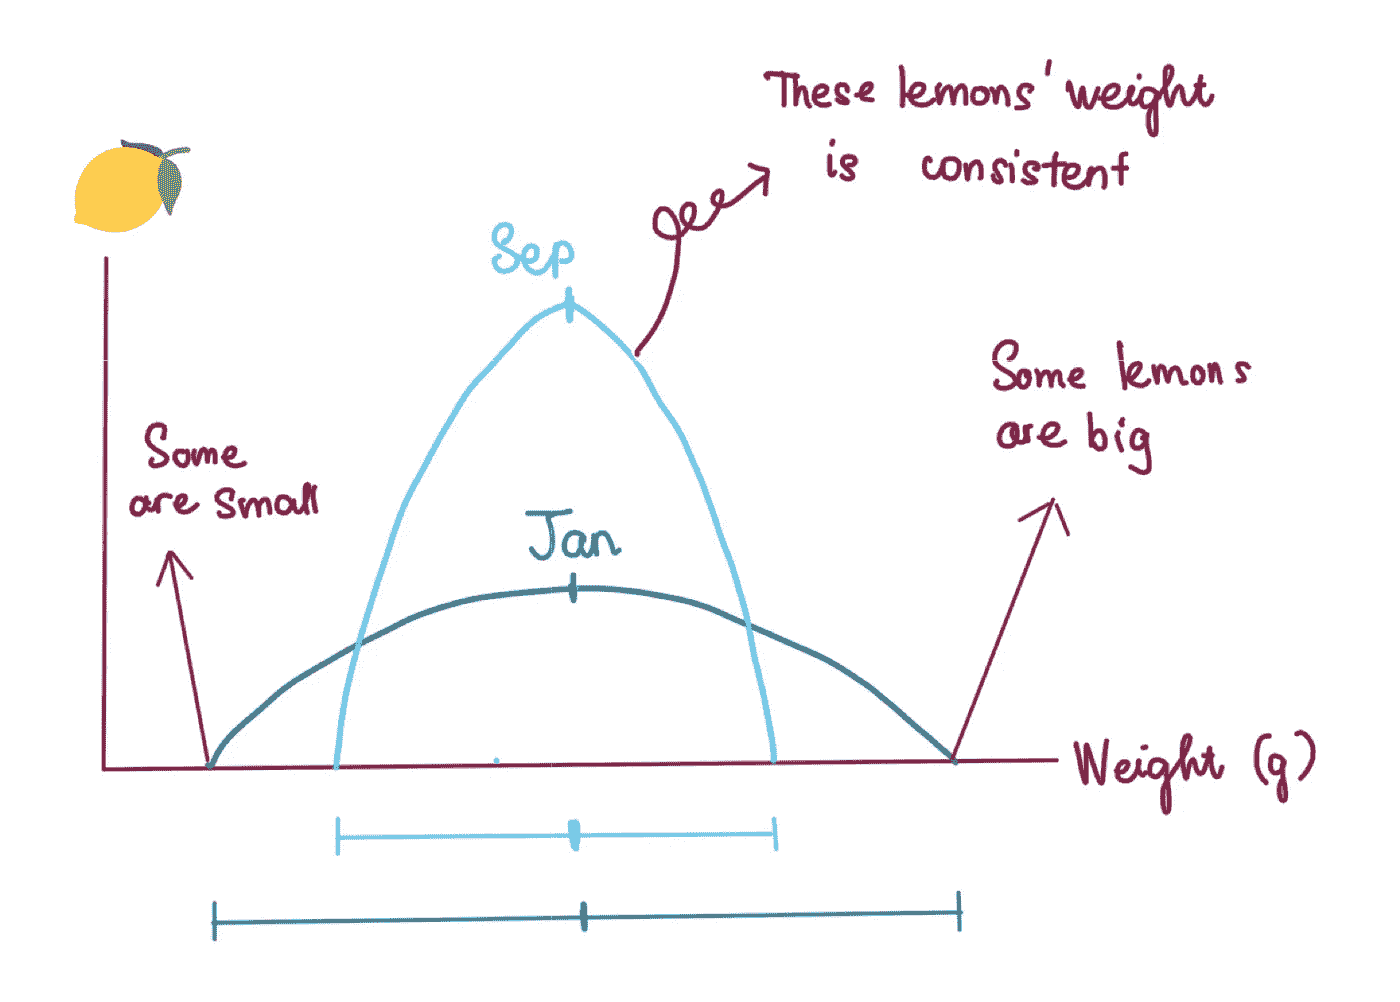 These lemons' weight
is consistent
Sep
Some lemons
are big
Some
are small
Jan
Weight (g)